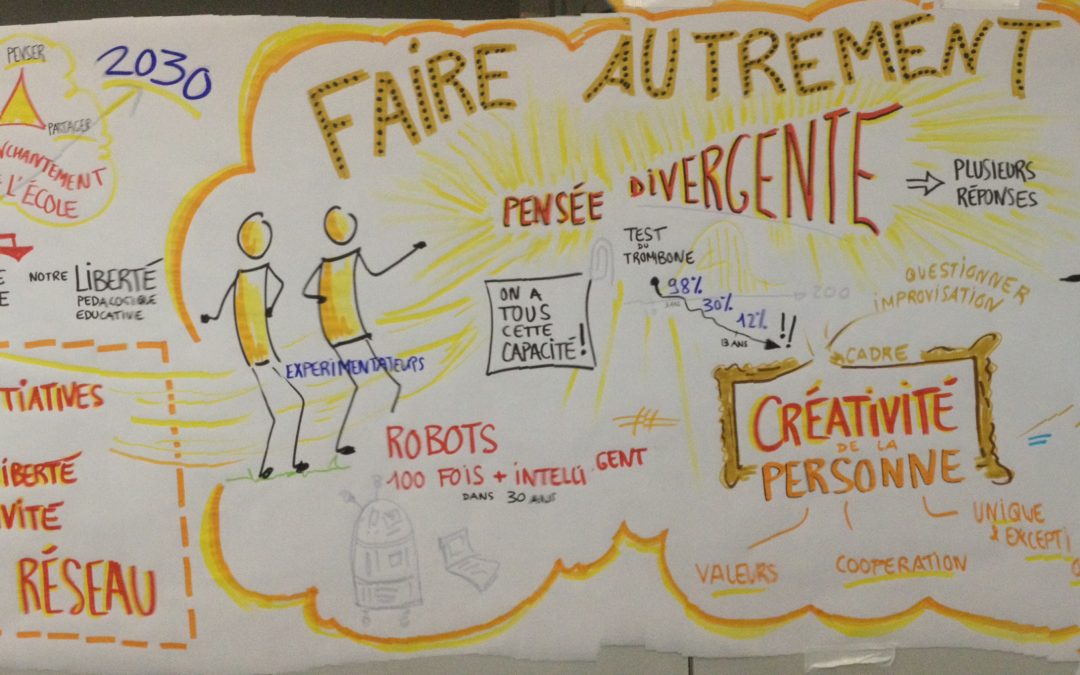 PENSER
PARTAGER
NCHANTEMENT
L'ÉCOLE
2030
NOTRE LIBERTÉ
PEDAGOGIQUE
EDUCATIVE
TIATIVES
IBERTÉ
VITÉ
RÉSEAU
FAIRE AUTREMENT
PENSÉE DiVERGENTE
PLUSIEURS
RÉPONSES
TEST
DU
TROMBONE
98%
30%
12%
13 ANS
!!
ON A
TOUS
CETTE
CAPACITÉ!
EXPERIMENTATEURS
ROBOTS
100 FOIS + INTELLIGENT
DANS 30 ANS
QUESTIONNER
IMPROVISATION
CADRE
CRÉATIVITÉ
DE LA
PERSONNE
VALEURS
COOPERATION
UNIQUE
& EXCEPTI